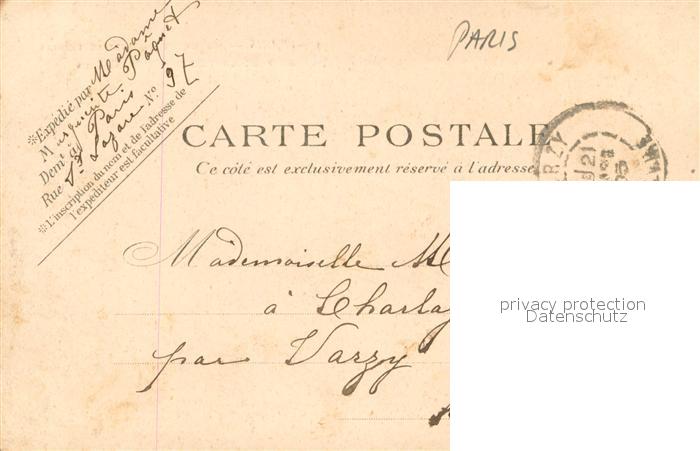 PARIS
*Expédié par Madame
M Paquet
Demt à Paris
Rue St Lazare No 97
*L'inscription du nom et de l'adresse de
l'expéditeur est facultative
CARTE POSTALE
Ce côté est exclusivement réservé à l'adresse
RZY
21
05
Mademoiselle M
à Charlay
par Varzy
privacy protection
Datenschutz